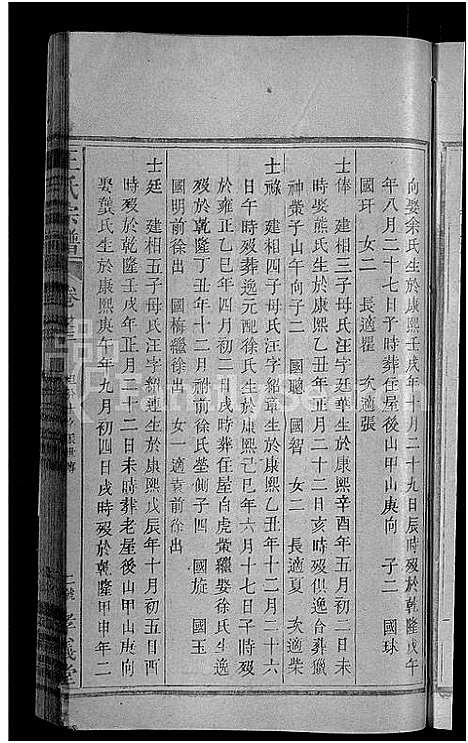 向娶余氏生於康熙壬戌年十月二十九日辰時歿於乾隆戊午
年八月二十七日子時葬住屋後山甲山庚向 子二 國球
國玕 女二 長適瞿 次適張
士俸 建相三子母氏汪字廷華生於康熙辛酉年五月初二日未
時娶熊氏生於康熙乙丑年正月二十二日亥時歿俱逸合葬獵
神黌子山午向子二 國聰 國智 女二 長適夏 次適柴
士祿 建相四子母氏汪字紹章生於康熙乙丑年十二月二十六
日午時歿葬逸元配徐氏生於康熙己巳年六月十七日子時歿
於雍正乙巳年四月初二日戌時葬住屋白虎黌繼娶徐氏生逸
歿於乾隆丁丑年十二月祔前徐氏塋側子四 國旋 國玉
國明前徐出 國梅繼徐出 女一適袁前徐出
士廷 建相五子母氏汪字紹連生於康熙戊辰年十月初五日酉
時歿於乾隆壬戌年正月二十二日未時葬老屋後山甲山庚向
娶龔氏生於康熙庚午年九月初四日戌時歿於乾隆甲申年二
王氏宗譜